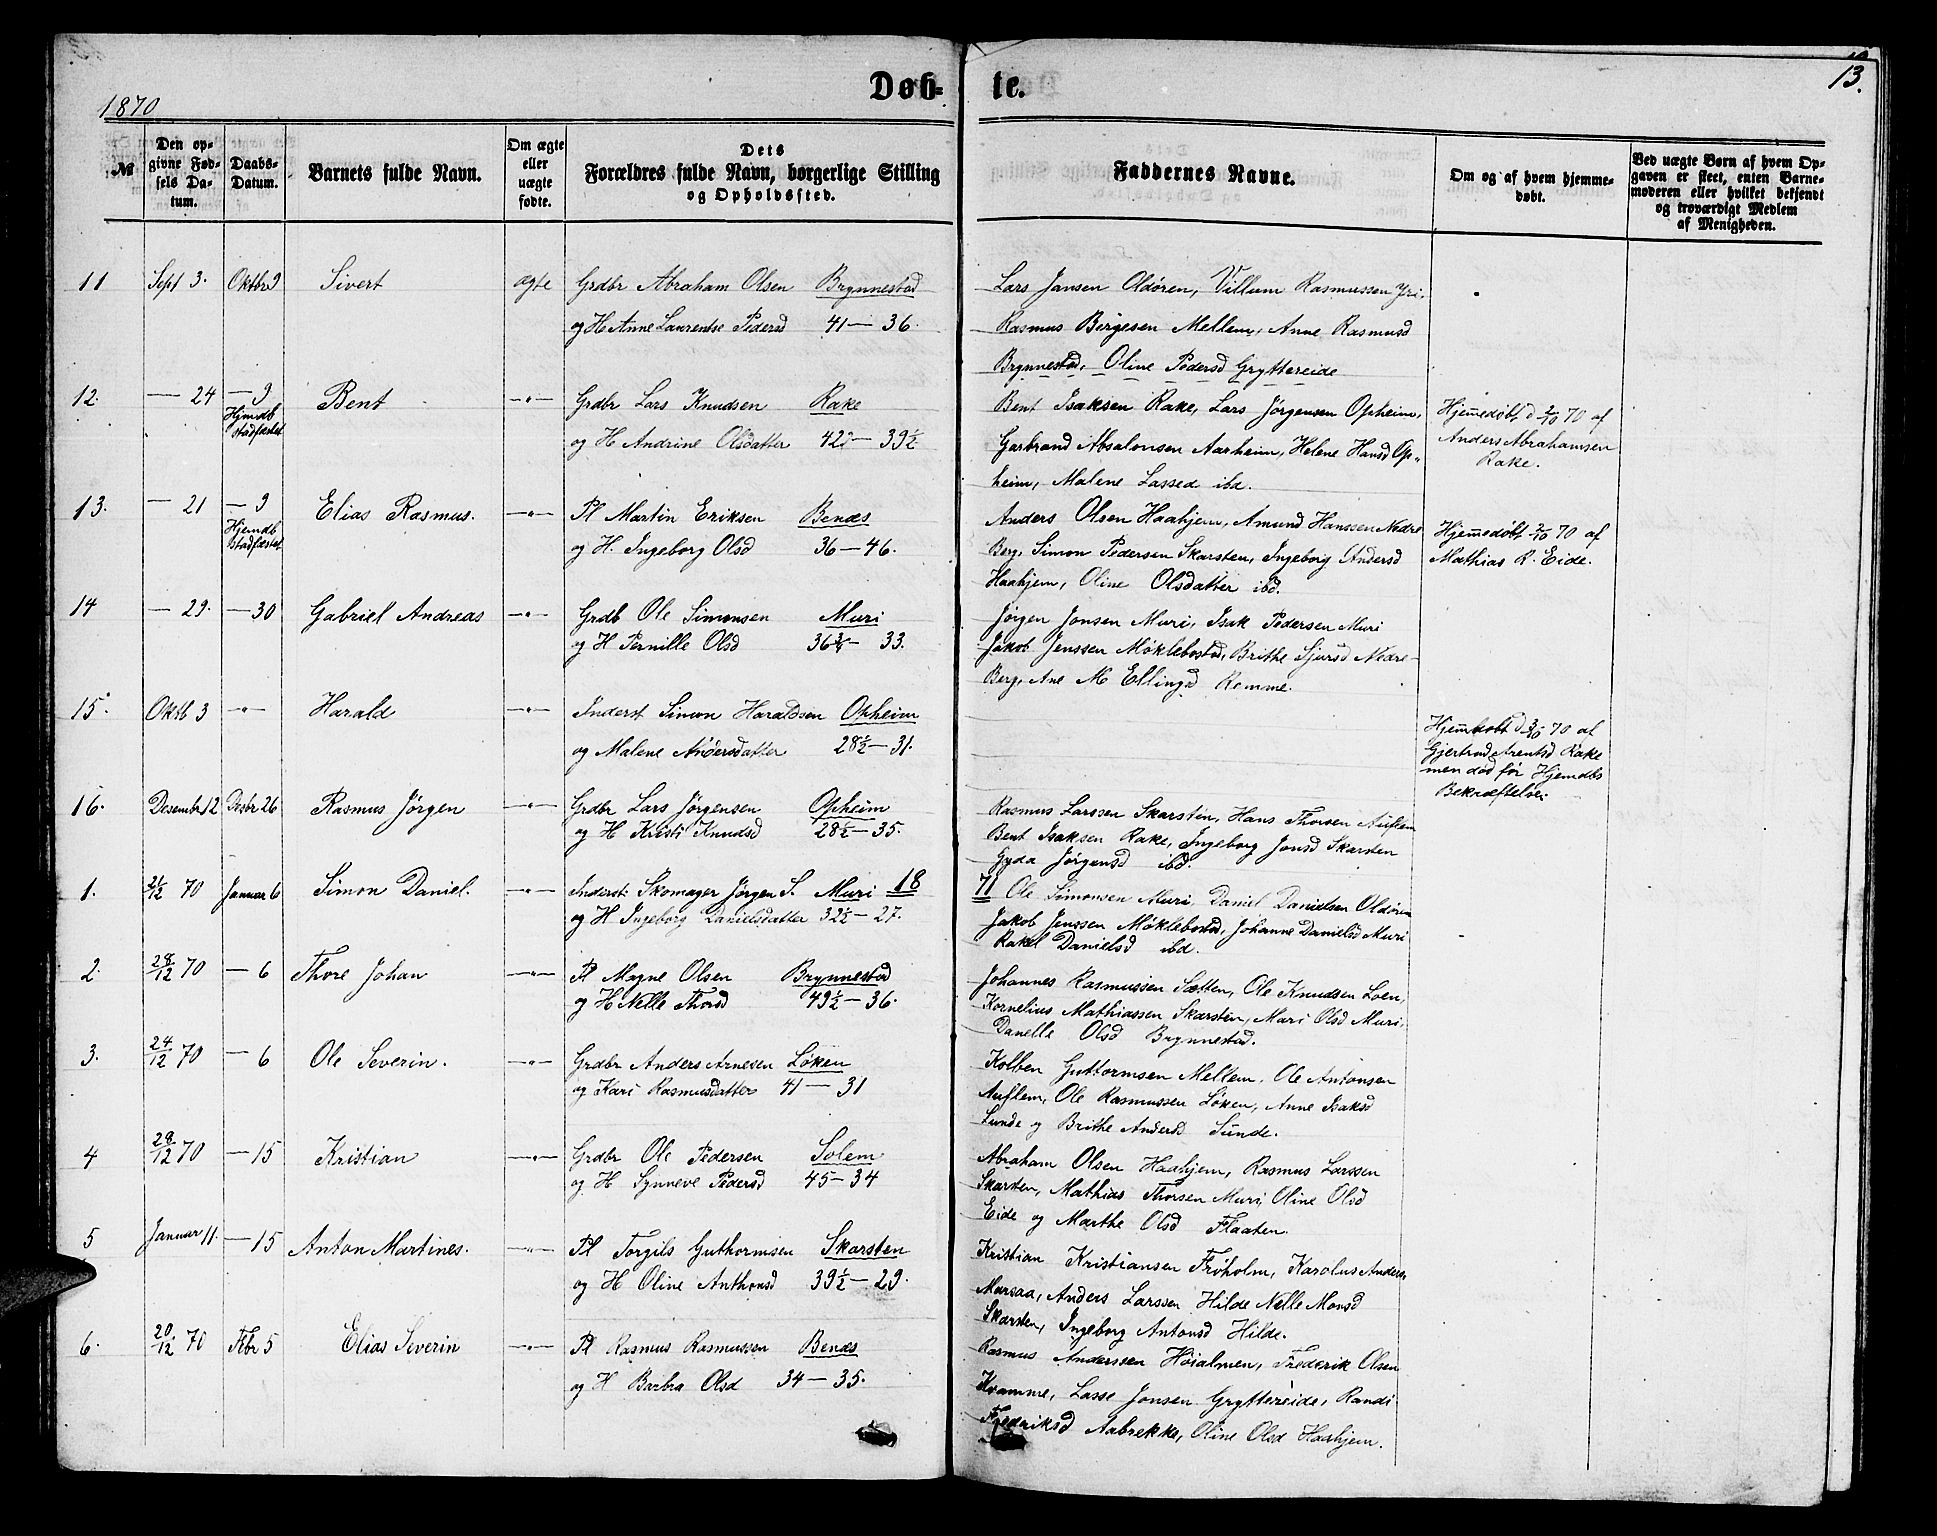 1870
Døb-
te.
13.
№
Den op-
givne Fød-
sels Da-
tum.
Daabs-
Datum.
Barnets fulde Navn.
Om ægte
eller
uægte
fødte.
Dets
Forældres fulde Navn, borgerlige Stilling
og Opholdssted.
Faddernes Navne.
Om og af hvem hjemme-
døbt.
Ved uægte Børn af hvem Op-
gaven er skeet, enten Barne-
moderen eller hvilket bekjendt
og troværdigt Medlem
af Menigheden.
11 Sept 3. Oktbr 9 Sivert ægte Grdbr Abraham Olsen Brynnestad
og H Anne Laurentse Pedersd 41 — 36.
Lars Jansen Oldøren, Villum Rasmussen Yri,
Rasmus Børgesen Mellem, Anne Rasmusd
Brynnestad, Oline Pedersd Gryttereide
12. — 24 — 9 Bent —"— Grdbr Lars Knudsen Rake
Hjemdb
stadfæstet
og H Andrine Olsdatter 42 — 39½
Bent Isaksen Rake, Lars Jørgensen Opheim,
Garbrand Absalonsen Aarheim, Helene Hansd Op-
heim, Malene Lassed ibd.
Hjemmedøbt d 2/10 70 af
Anders Abrahamsen
Rake.
13. — 21 — 9 Elias Rasmus. —"— Pl Martin Eriksen Benæs
Hjemdb
stadfæstet
og H. Ingeborg Olsd 36 — 46.
Anders Olsen Haahjem, Amund Hanssen Nedre
Berg, Simon Pedersen Skarsten, Ingeborg Andersd
Haahjem, Oline Olsdatter ibd.
Hjemmedøbt 2/10 70 af
Mathias R. Eide.
14 — 29. — 30 Gabriel Andreas —"— Grdb Ole Simonsen Muri
og H Pernille Olsd 36¾ — 33.
Jørgen Jonsen Muri, Isak Pedersen Muri
Jakob Jenssen Møklebostad, Brithe Sjursd Nedre-
Berg, Ane M Ellingsd Remme.
15. Oktb 3 —"— Harald —"— Inderst Simon Haraldsen Opheim
og Malene Andersdatter 28½ — 31.
Hjemdøbt d 3/10 70 af
Gjertrud Arentsd Rake
men død før Hjemdbs
Bekræftelse.
16. Desembr 12 Desbr 26 Rasmus Jørgen —"— Grdbr Lars Jørgensen Opheim
og H Kristi Knudsd 28½ — 35.
Rasmus Larssen Skarsten, Hans Thorsen Auflem
Bent Isaksen Rake, Ingeborg Jonsd Skarsten
Gyda Jørgensd ibd.
1. 21/12 70 Januar 6 Simon Daniel. —"— Inderst. Skomager Jørgen S. Muri 18
og H Ingeborg Danielsdatter 32½ — 27.
71 Ole Simonsen Muri, Daniel Danielsen Oldøren
Jakob Jenssen Møklebostad, Johanne Danielsd Muri
Rakel Danielsd ibd.
2. 28/12 70 — 6 Thore Johan —"— Pl Magne Olsen Brynnestad
og H Nelle Thorsd 49½ — 36.
Johannes Rasmussen Sætten, Ole Knudsen Loen,
Kornelius Mathiassen Skarsten, Mari Olsd Muri,
Danelle Olsd Brynnestad.
3. 24/12 70 — 6 Ole Severin. —"— Grdbr Anders Arnesen Løken
og Kari Rasmusdatter 41 — 31
Kolben Guttormsen Mellem, Ole Antonsen
Auflem, Ole Rasmussen Løken, Anne Isaksd
Sunde og Brithe Andersd Sunde.
4 29/12 70 — 15 Kristian —"— Grdbr Ole Pedersen Solem
og H Synneve Pedersd 45 — 34
Abraham Olsen Haahjem, Rasmus Larssen
Skarsten, Mathias Thorsen Muri, Oline Olsd
Eide og Marthe Olsd Flaaten.
5 Januar 11. — 15 Anton Martines. —"— Pl Torgils Guthormsen Skarsten
og H Oline Anthonsd 39½ — 29.
Kristian Kristiansen Frøholm, Karolus Anders.
Marsaa, Anders Larssen Hilde Nelle Monsd
Skarsten, Ingeborg Antonsd Hilde.
6. 20/12 70 Febr 5 Elias Severin —"— Pl Rasmus Rasmussen Benæs
og H Barbra Olsd 34 — 35.
Rasmus Anderssen Høialmen, Frederik Olsen
Kvamme, Lasse Jonsen Gryttereide, Randi
Frederiksd Aabrekke, Oline Olsd Haahjem.